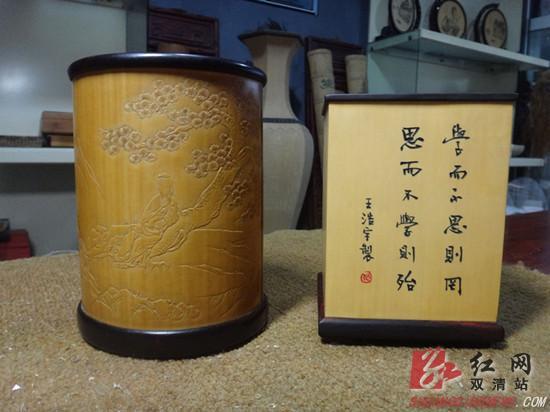 學而不思則罔
思而不學則殆
王浩宇製
红网
双清站